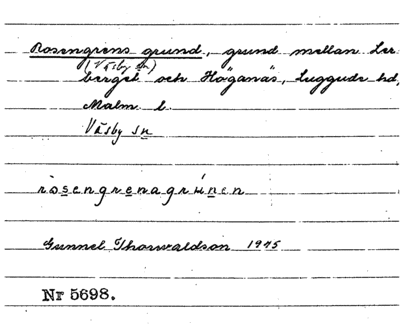 Rosengrens grund, grund mellan Ler-
(Väsby sn)
berget och Höganäs, Luggude hd,
Malm. l.
Väsby sn
rosengrenagrunen
Gunnel Thorwaldson 1975
Nr 5698.